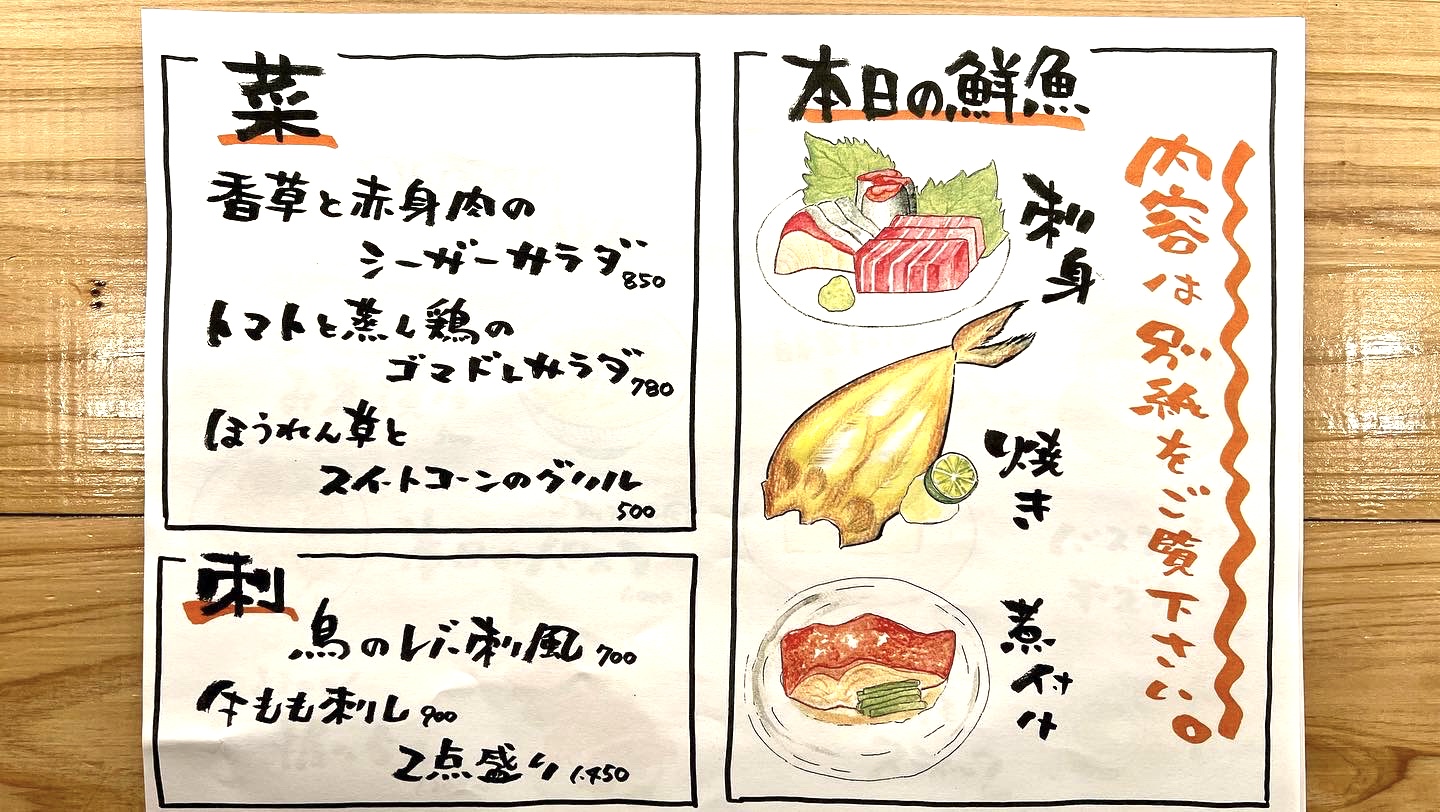 菜
香草と赤身肉の
シーザーサラダ 850
トマトと蒸し鶏の
ゴマドレサラダ 780
ほうれん草と
スイートコーンのグリル
500
刺
鳥のレバ刺風 700
牛もも刺し 900
2点盛り 1,450
本日の鮮魚
刺身
焼き
煮付け
内容は別紙をご覧下さい。